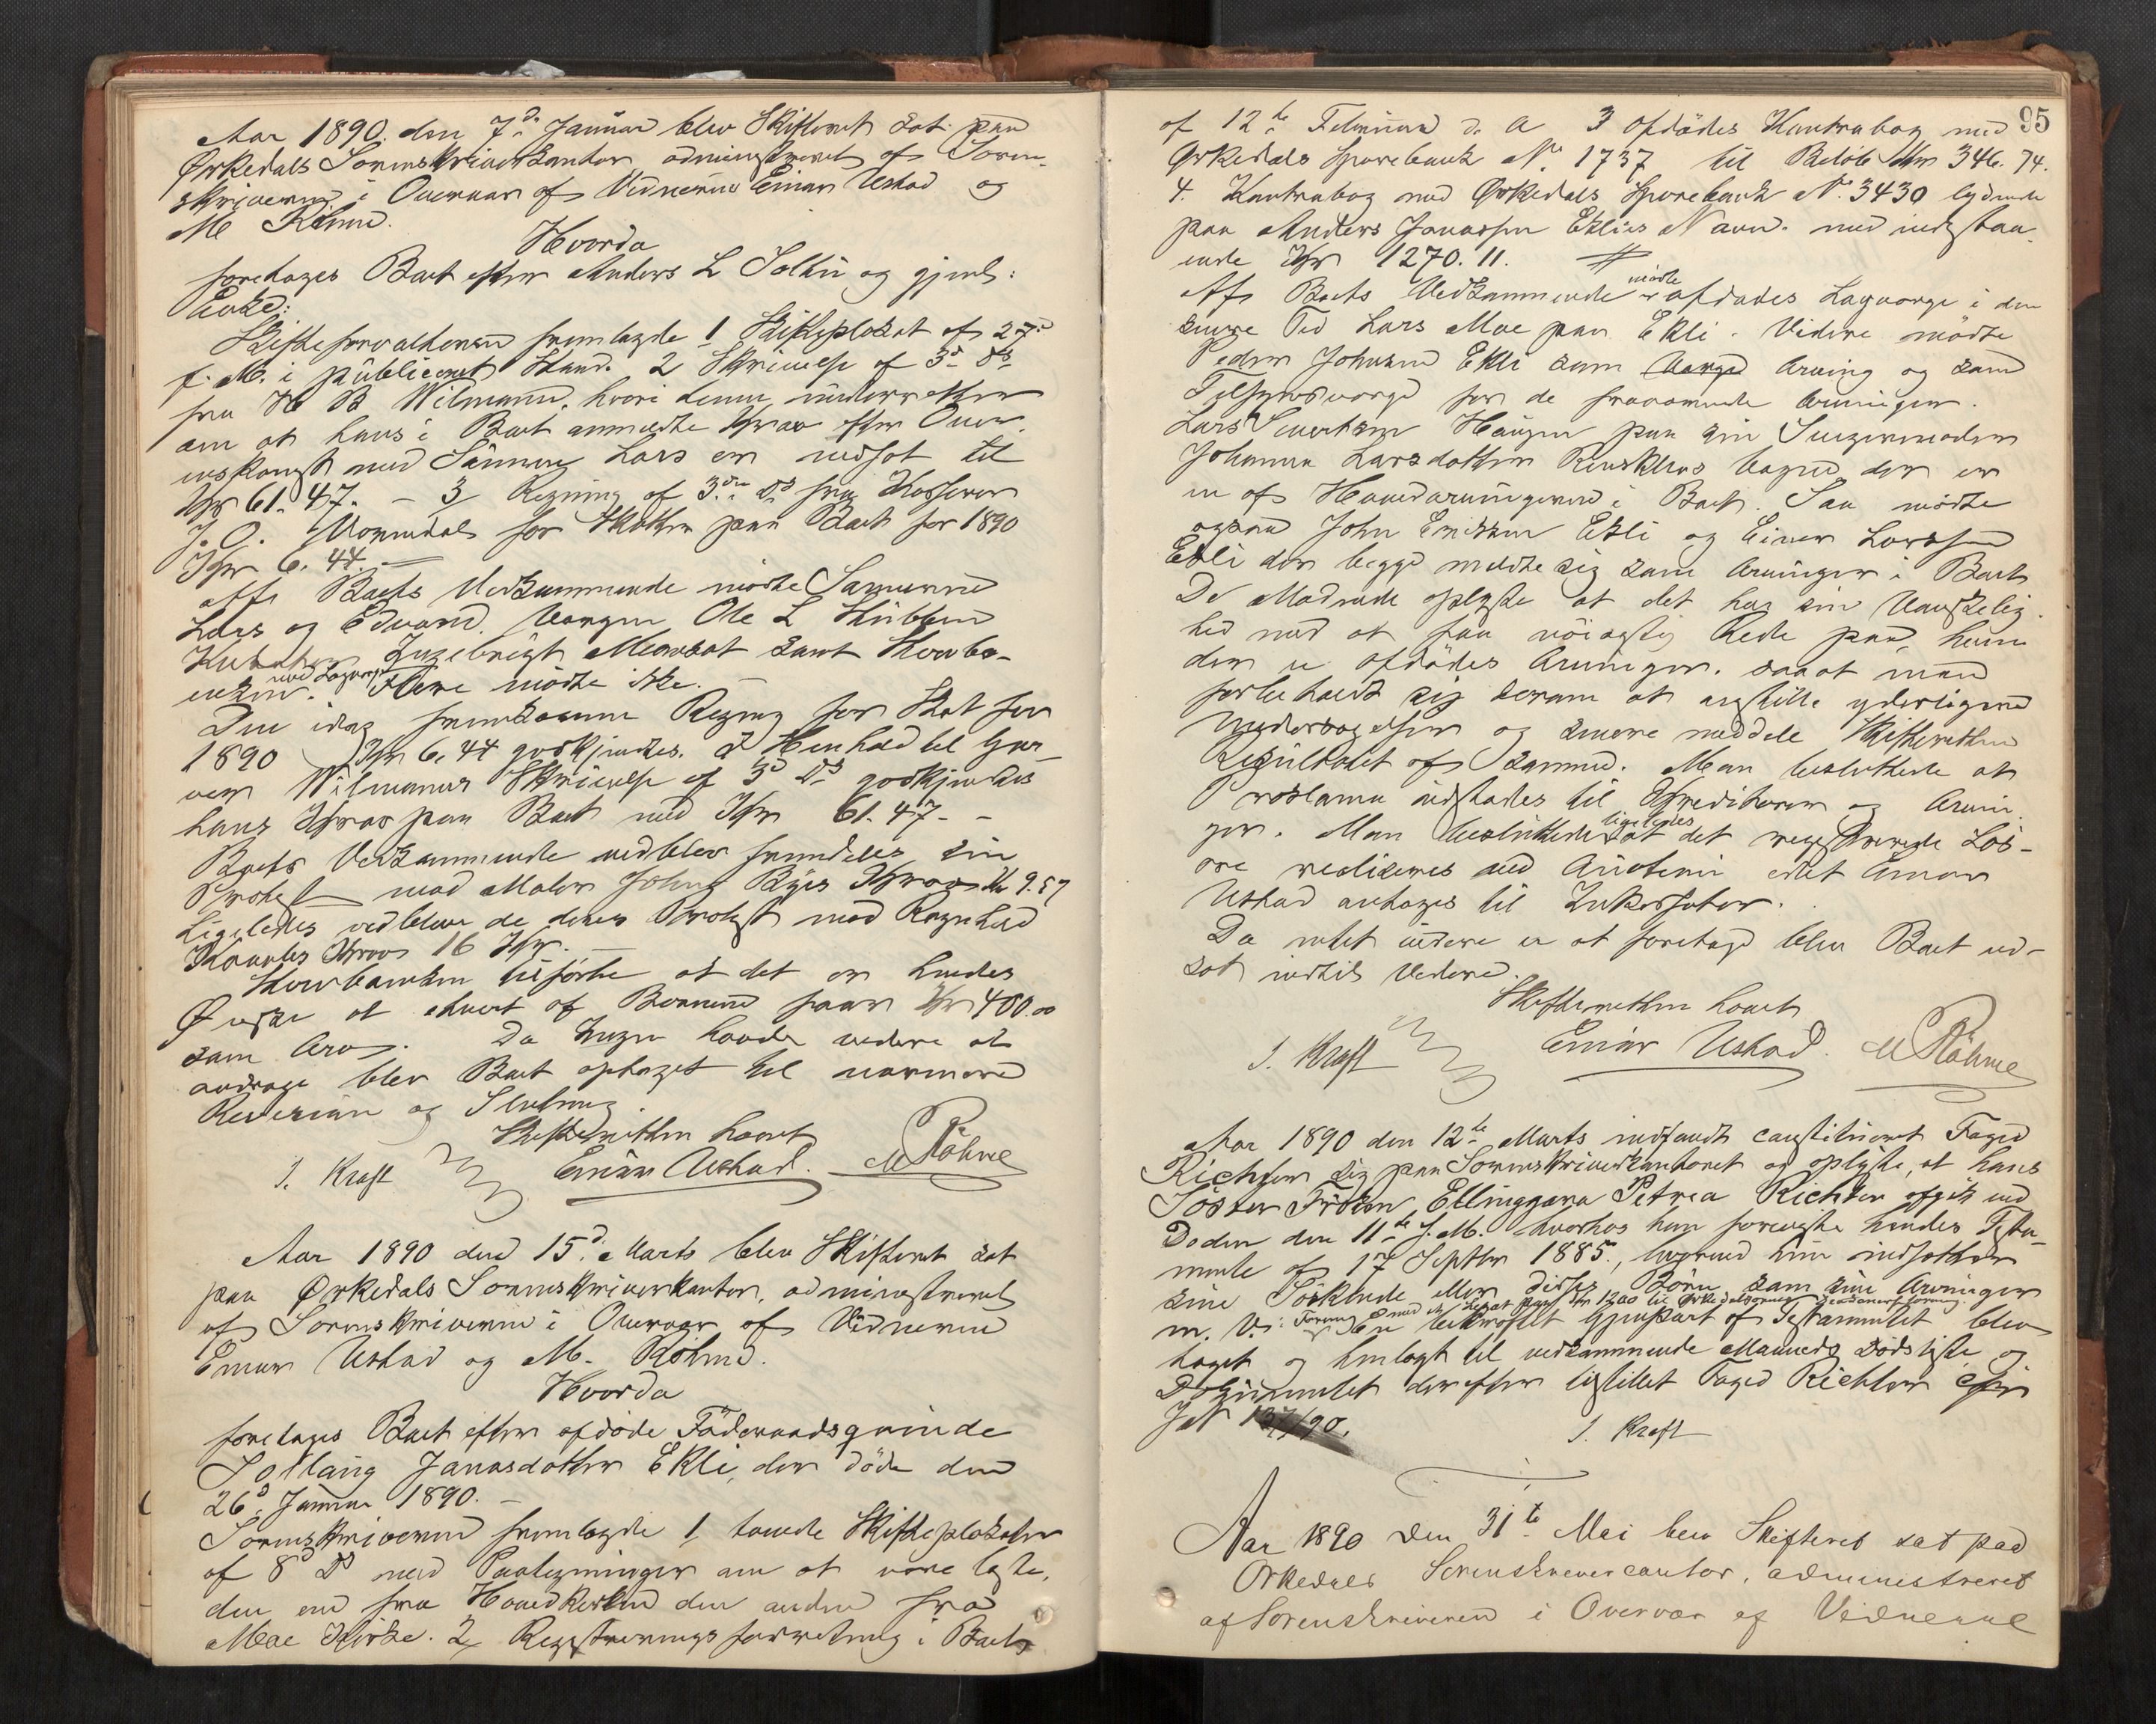 Aar 1890. den 7de Januar blev Skifteret sat paa
Ørkedals Sorenskriverkontor, administreret af Soren-
skriveren i Overvær af Vidnerne Einar Ustad og
M Röhme.
Hvorda
foretages Boet efter Anders L Solli og gjenl:
Enke:
Skifteforvalteren fremlagde 1 Skifteplakat af 27de
f. M. i publiceret Stand. 2 Skrivelse af 3d ds
fra H B Wilmann, hvori denne underretter
om at hans i Boet anmeldte Krav efter Over-
enskomst med Sønnen Lars er nedsat til
Kr 61.47. - 3/ Regning af 3die ds fra Kasserer
J. O. for Skatten paa Boet for 1890
Kr 6.44. -
Af Boets Vedkommende mødte Sønnerne
Lars og Edvard. Vergen Ole L
Kurator Ingebrigt samt Stervbo-
enken. med Laugverge Flere mødte ikke. -
Den idag fremkomne Regning for Skat for
1890 Kr 6.44 godkjendtes. I Henhold til Gar-
ver Wilmanns Skrivelse af 3d ds godkjendtes
hans Krav paa Boet med Kr 61.47. -
Boets Vedkommende vedblev fremdeles sin
Protest mod Maler Johns Krav Kr 9.57
Ligeledes vedblev de deres Protest mod Ragnhild
Krav 16 Kr. -
Stervboenken tilførte at det er hendes
Ønske at hvert af Børnene faar Kr 400.00
som Arv. Da Ingen havde videre at
andrage blev Boet optaget til nærmere
Revision og Slutning.
Skifteretten hævet
J. Kraft Einar Ustad. M Röhme
Aar 1890 den 15d Marts blev Skifteret sat
paa Ørkedals Sorenskriverkontor, administreret
af Sorenskriveren i Overvær af Vidnerne
Einar Ustad og M. Röhme.
Hvorda
foretages Boet efter afdøde Föderaadsqvinde
Sollaug Jonasdatter Ekli, der döde den
26d Januar 1890. -
Sorenskriveren fremlagde 1, tvende Skifteplakater
af 8d ds med Paategninger om at være læste,
den ene fra Hovedkirken den anden fra
Moe Kirke. 2, Registreringsforretning i Boet
95
af 12te Februar d. A 3 Afdødes Kontrabog med
Ørkedals Sparebank No. 1737 til Beløb Kr 346.74.
4. Kontrabog med Ørkedals Sparebank No. 3430 lydende
paa Anders Jonassen Eklis Navn. med indestaa-
ende Kr 1270.11.
Af Boets Vedkommende mødte afdødes Lagverge i den
senere Tid Lars Moe paa Ekli. Videre mødte
Peder Johnsen Ekli som Verge Arving og som
Tilsynsverge for de fraværende Arvinger.
Lars Sivertsen Haugen paa sin Svigermoder
Johanna Larsdatter Vegne, der er
en af Hovedarvingerne i Boet. Saa mødte
ogsaa John Eriksen Ekli og Einar Larssen
Ekli der begge meldte sig som Arvinger i Boet
De Mødende oplyste at det har sin Vanskelig-
hed med at faa nöiagtig Rede paa, hvem
der er afdødes Arvinger, saaat man
forbeholdt sig senere at anstille yderligere
Undersøgelser og senere meddele Skifteretten
Resultatet af samme. Man besluttede at
Proklama udstedes til Kreditorer og Arvin-
ger. Man besluttede ligeledes at det registrerede Løs-
øre realiseres ved Auction idet Einar
Ustad antages til Inkassator.
Da intet videre er at foretage blev Boet ud-
sat indtil videre.
Skifteretten hævet
J. Kraft Einar Ustad. M Röhme
Aar 1890 den 12te Marts indfandt constitueret Foged
Richter sig paa Sorenskriverkontoret og oplyste, at hans
Søster Frøken Ellinggara Petrea Richter afgik ved
Døden den 11te d. M. hvorhos han foreviste hendes Testa-
mente af 17 Septbr 1885, hvorved hun indsætter
sine Søskende eller disses Børn som sine Arvinger
m. V. En bekræftet Gjenpart af Testamentet blev
med et Legat paa Kr 1200 til
taget og henlagt til vedkommende Maaneds Dødsliste og
Dokumentet derefter tilstillet Foged Richter
JN 137/90.
J. Kraft
Aar 1890 den 31te Mai blev Skifteret sat paa
Orkedals Sorenskrivercontor, administreret
af Sorenskriveren i Overvær af Vidnerne